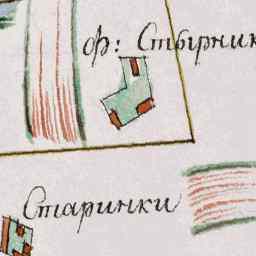 ф: Стырник
Старинки